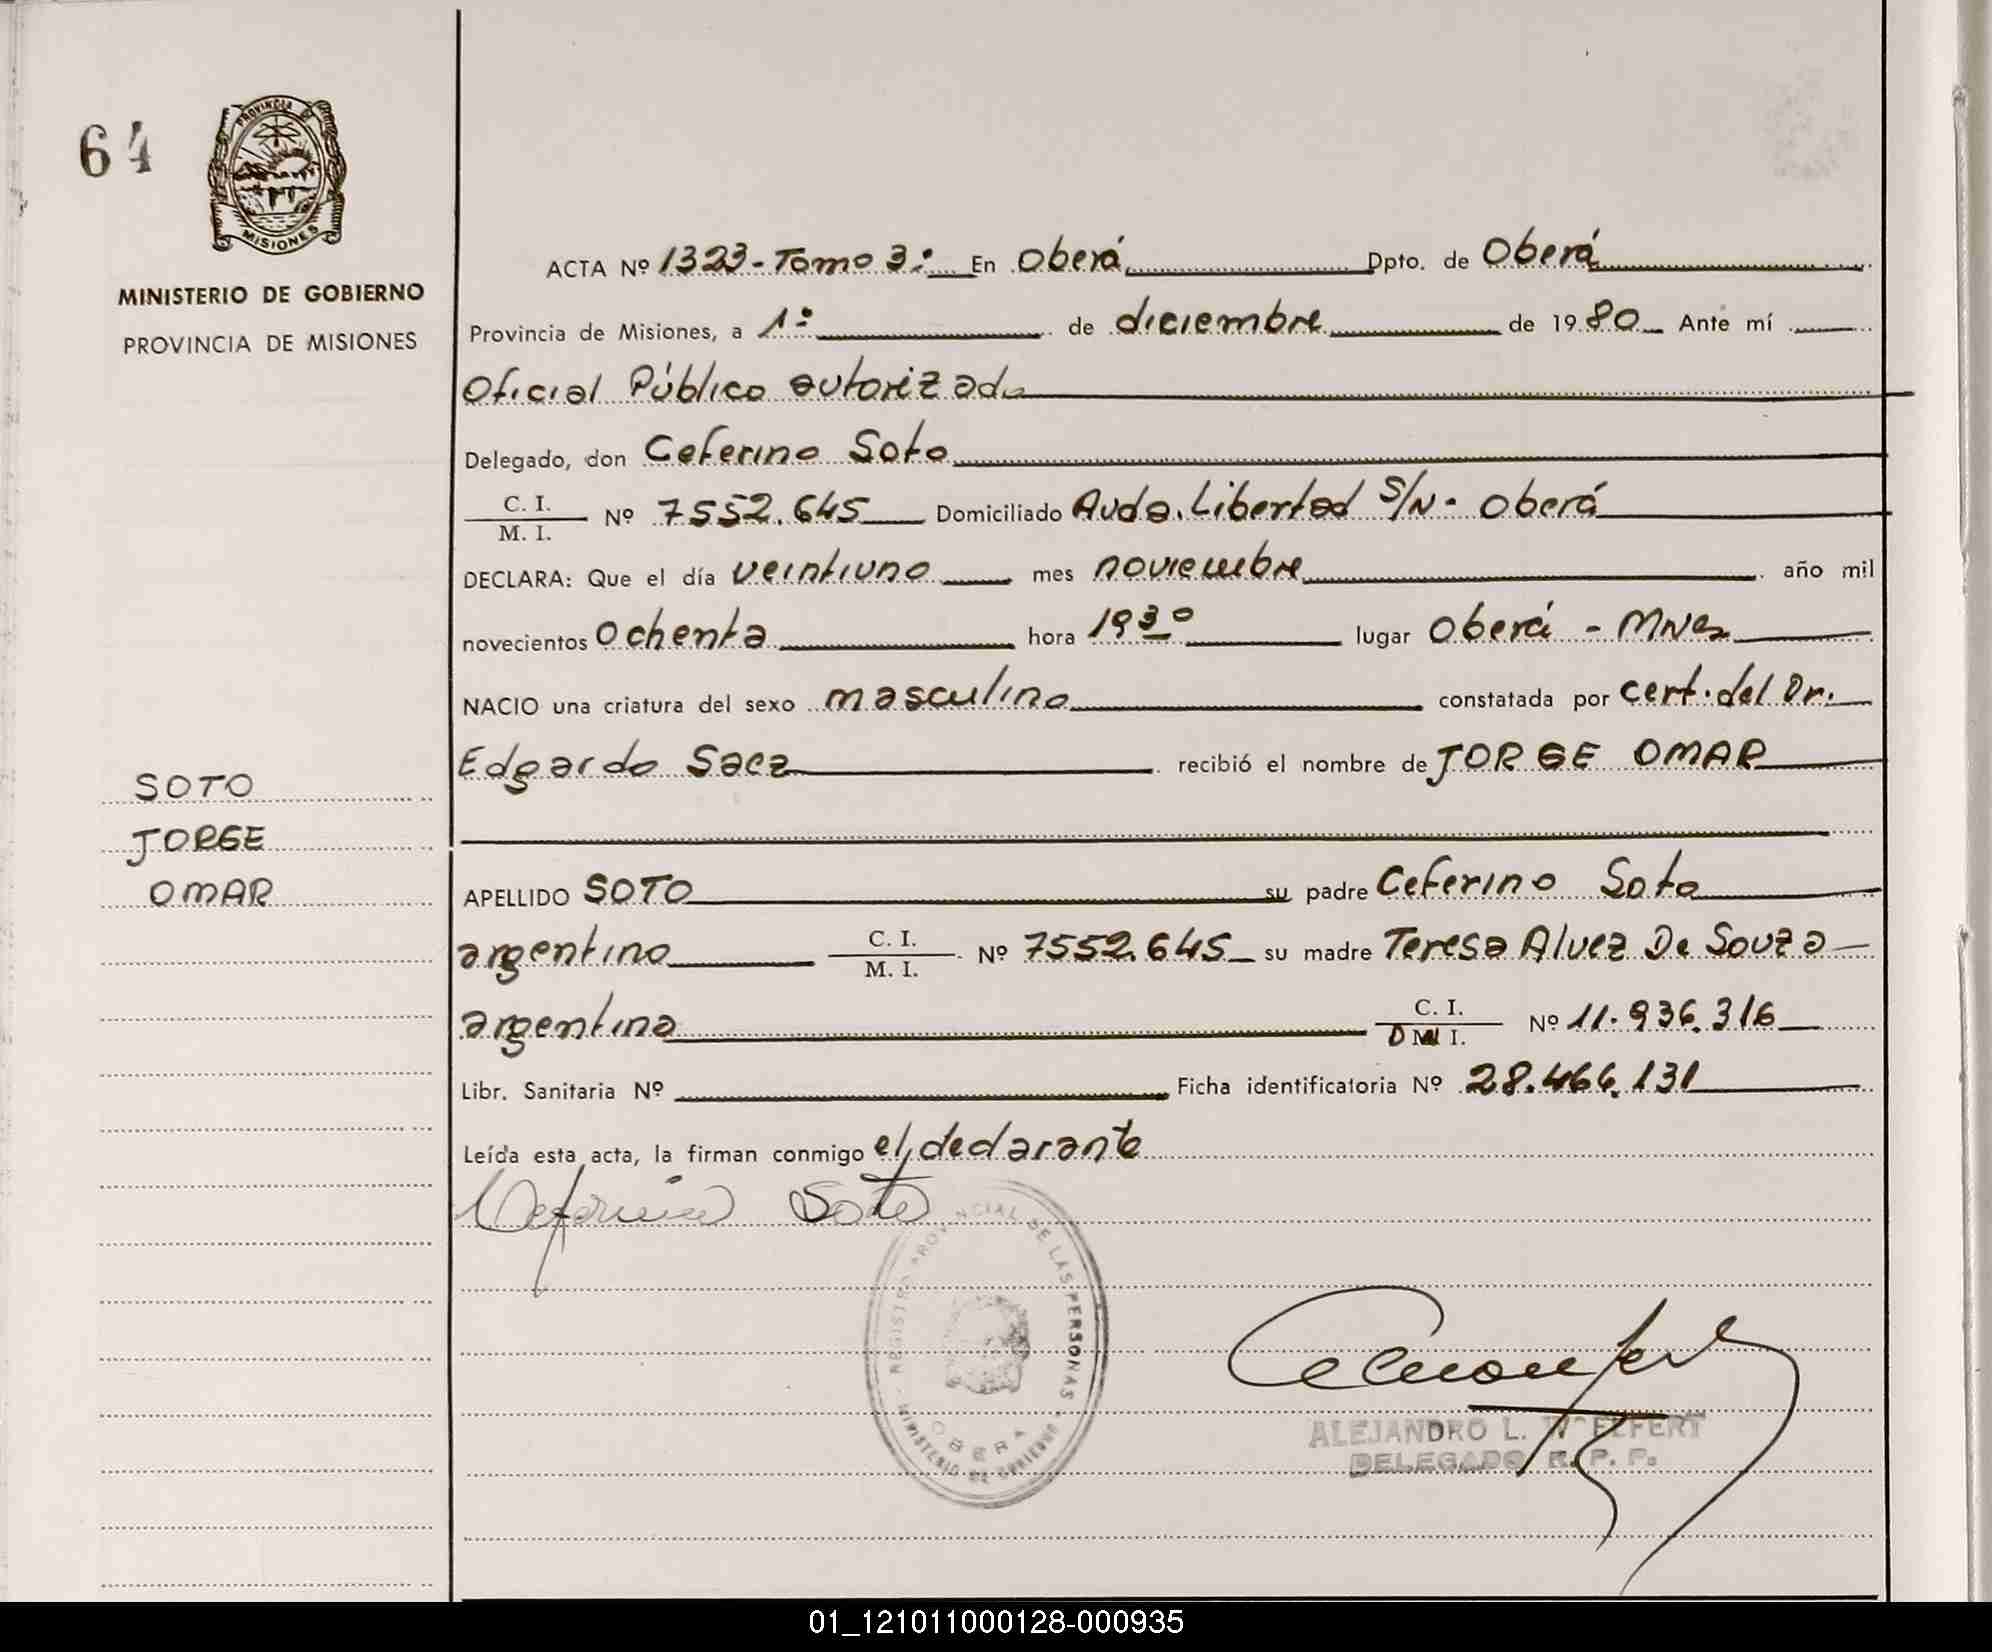 64
PROVINCIA DE
MISIONES
MINISTERIO DE GOBIERNO
PROVINCIA DE MISIONES
SOTO
JORGE
OMAR
ACTA Nº 1323-Tomo 3º En Oberá Dpto. de Oberá
Provincia de Misiones, a 1º de diciembre de 1980 Ante mí
Oficial Público autorizado
Delegado, don Ceferino Soto
C. I.
M. I. Nº 7552.645 Domiciliado Avda. Libertad S/N- Oberá
DECLARA: Que el día veintiuno mes noviembre año mil
novecientos Ochenta hora 19 30 lugar Oberá - Mnes
NACIO una criatura del sexo masculino constatada por cert. del Dr.
Edgardo Saez recibió el nombre de JORGE OMAR
APELLIDO SOTO su padre Ceferino Soto
argentino C. I.
M. I. Nº 7552.645 su madre Teresa Alvez De Souza
argentina C. I.
D M I. Nº 11.936.316
Libr. Sanitaria Nº Ficha identificatoria Nº 28.466.131
Leída esta acta, la firman conmigo el declarante
Ceferino Soto
REGISTRO PROVINCIAL DE LAS PERSONAS
MINISTERIO DE GOBIERNO
OBERA
ALEJANDRO L.
DELEGADO R. P. P.
01_121011000128-000935